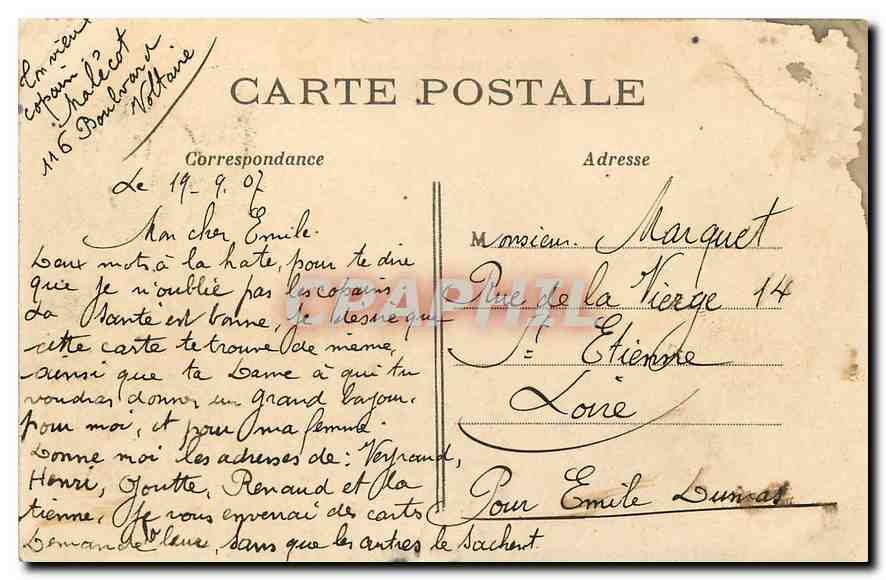 CARTE POSTALE
Correspondance
Adresse
Le 19-9.07
Mon cher Emile.
Deux mots à la hate, pour te dire
que je n'oublie pas les copains
La Santé est bonne, je désire que
cette carte te trouve de même,
ainsi que ta Dame à qui tu
voudras donner un grand bajour,
pour moi, et pour ma femme.
Donne moi les adresses de: Veyraud,
Henri, Goutte, Renaud et la
tienne, Je vous enverrai des cartes
Demande leur, sans que les autres le sachent
Ton vieux
copain
Malécot
116 Boulvard
Voltaire
Monsieur. Marquet
Rue de la Vierge 14
St Etienne
Loire
Pour Emile Dumas
CPAPHIL